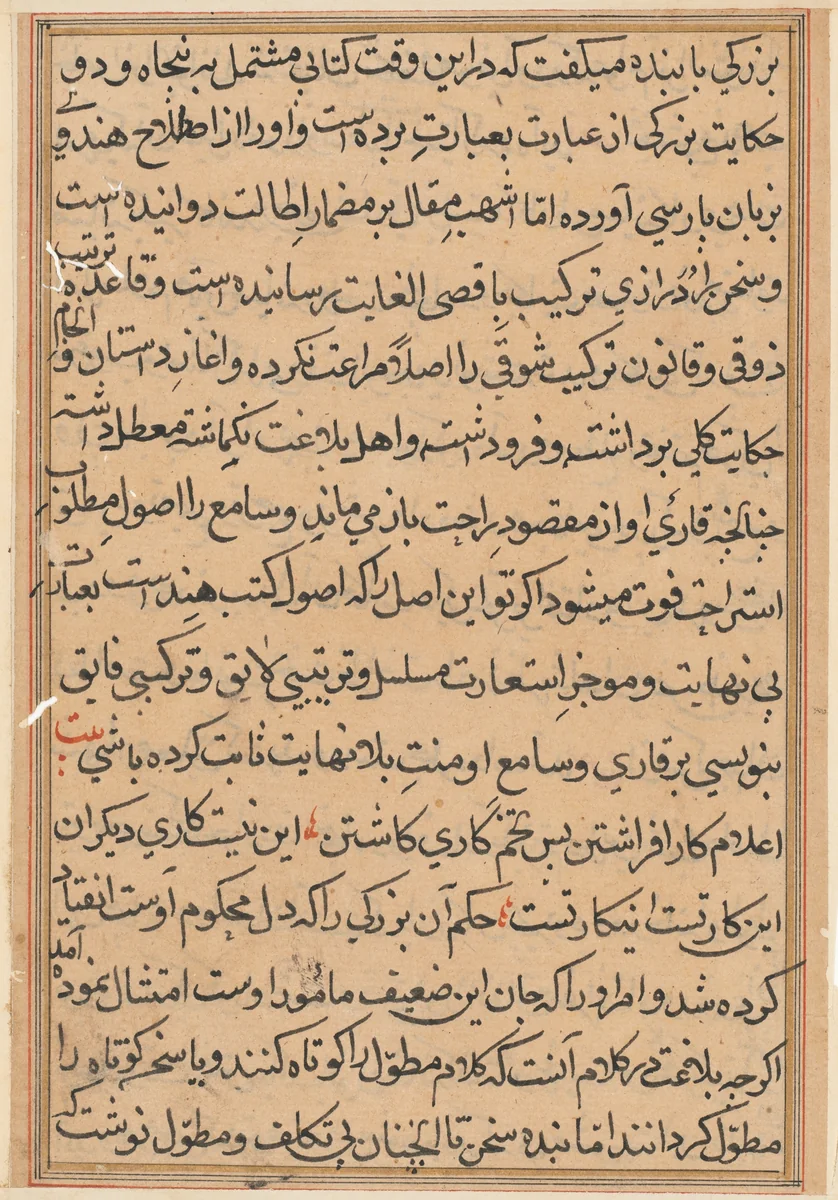 بزرکي با بنده میکفت که درین وقت کتابي مشتمل به پنجاه و دو
حکایت بزرکی از عبارت بعبارتِ برده است و اورا از اصطلاح هندوی
بزبان پارسي آورده امّا اشهبِ مقال بر مضمارِ اطالت دوانیده است
و سخن را دُرازي ترکیب باقصی الغایت رسانیده است و قاعدهٔ ترتیب
ذوقی و قانون ترکیب شوقی را اصلًا مراعت نکرده و اغازِ داستان و انجام
حکایت کلي برداشته و فرود اشته و اهل بلاغت بکماشته معطل داشته
چنانچه قارئ او از مقصودِ راحت باز مي ماند و سامع را اصولِ مطلوب
استراحت فوت میشود اکر تو این اصل را که اصول کتب هند است بعبارت
بي نهایت و موجزِ استعارت مسلسل و ترتیبي لایق و ترکیبي فایق
بنویسي بر قاري و سامع او منتِ بلا نهایت ثابت کرده باشي بیت
اعلام کار افراشتن پس تخم کاري کاشتن این نیست کاري دیکران
این کار تست این کار تست حکم آن بزرکي را که دل محکوم اوست انقیاد
کرده شد و امر او را که جان این ضعیف مامور اوست امتثال نموده آمد
اکرچه بلاغت در کلام آنست که کلام مطوّل را کوتاه کنند و یا سخن کوتاه را
مطوّل کردانند امّا بنده سخن تا انچنان بي تکلف و مطوّل نوشت که